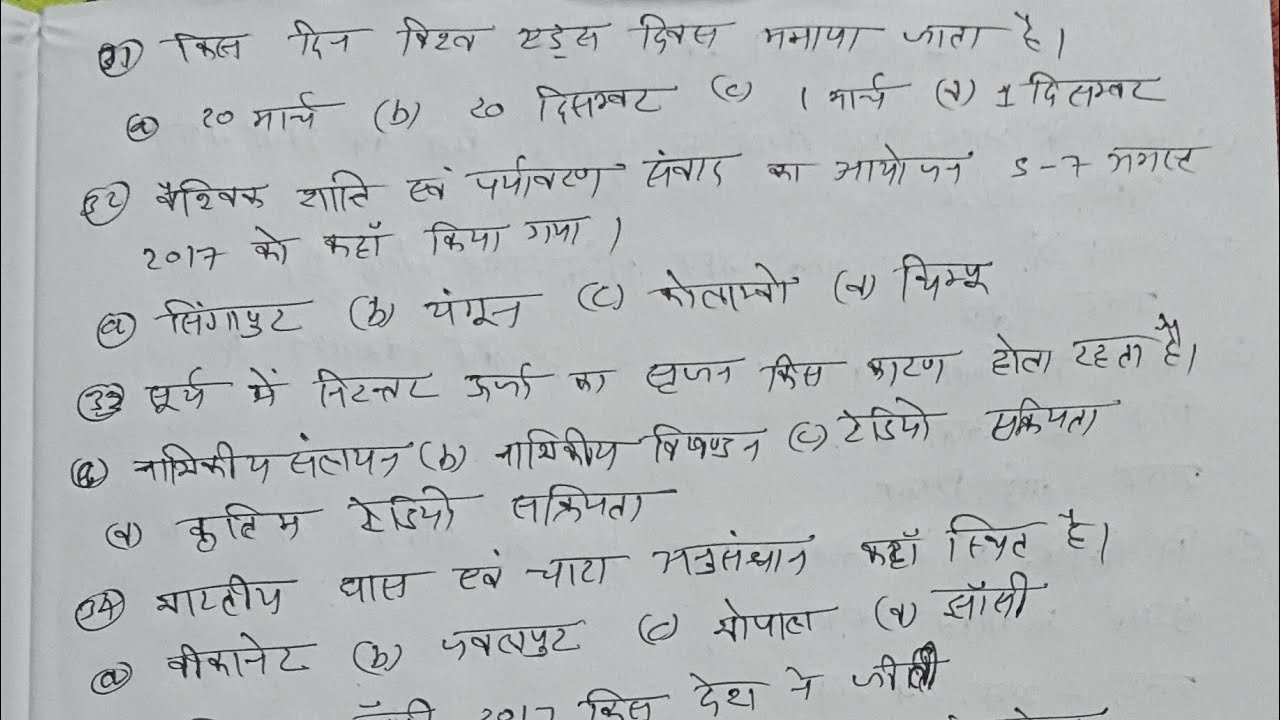 31) किस दिन विश्व एड्स दिवस मनाया जाता है।
(a) 20 मार्च (b) 20 दिसम्बर (c) 1 मार्च (d) 1 दिसम्बर
32) वैश्विक शांति एवं पर्यावरण संवाद का आयोजन 5-7 अगस्त
2017 को कहाँ किया गया।
(a) सिंगापुर (b) यंगून (c) कोलाम्बो (d) थिम्पू
33) सूर्य में निरन्तर ऊर्जा का सृजन किस कारण होता रहता है।
(a) नाभिकीय संलयन (b) नाभिकीय विखण्डन (c) रेडियो सक्रियता
(d) कृत्रिम रेडियो सक्रियता
34) भारतीय घास एवं चारा अनुसंधान कहाँ स्थित है।
(a) बीकानेर (b) जबलपुर (c) भोपाल (d) झाँसी
2017 किस देश ने जीती